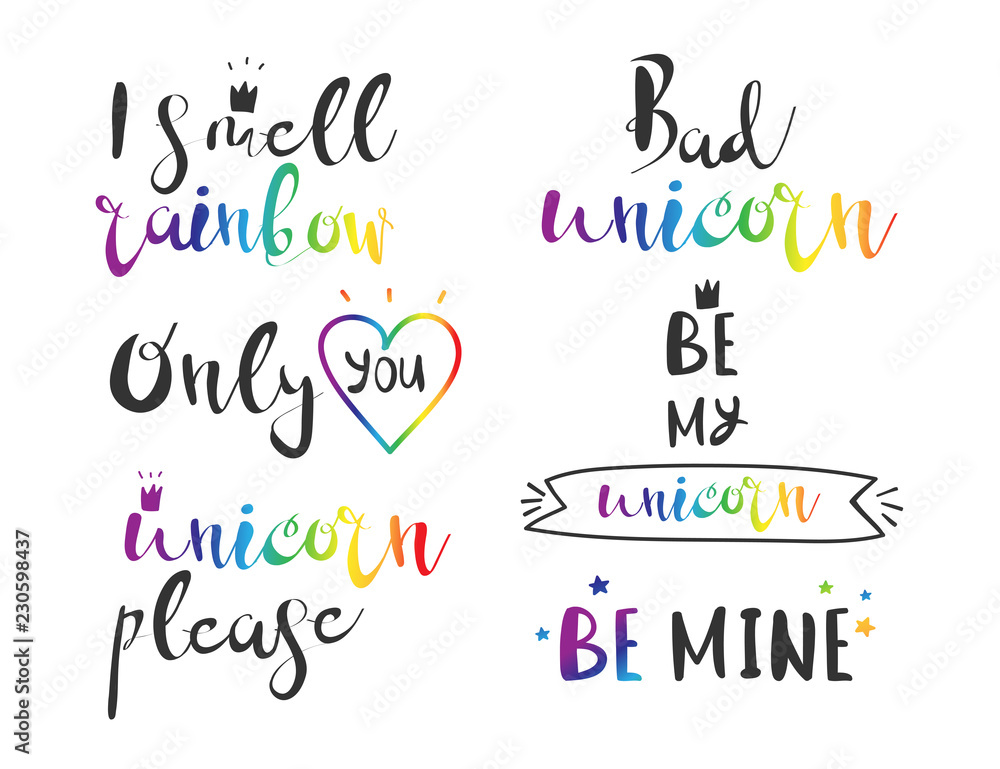 I smell
rainbow
Only you
unicorn
please
Bad
unicorn
BE
MY
unicorn
BE MINE
Adobe Stock | #230598437